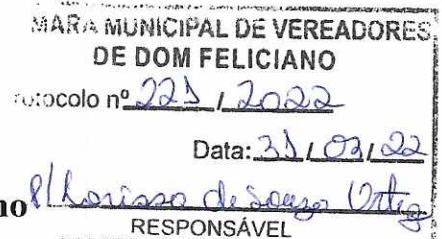 MARA MUNICIPAL DE VEREADORES
DE DOM FELICIANO
otocolo nº 221 / 2022
Data: 31 / 03 / 22
no P/ Larissa de Souza Ortiz
RESPONSÁVEL